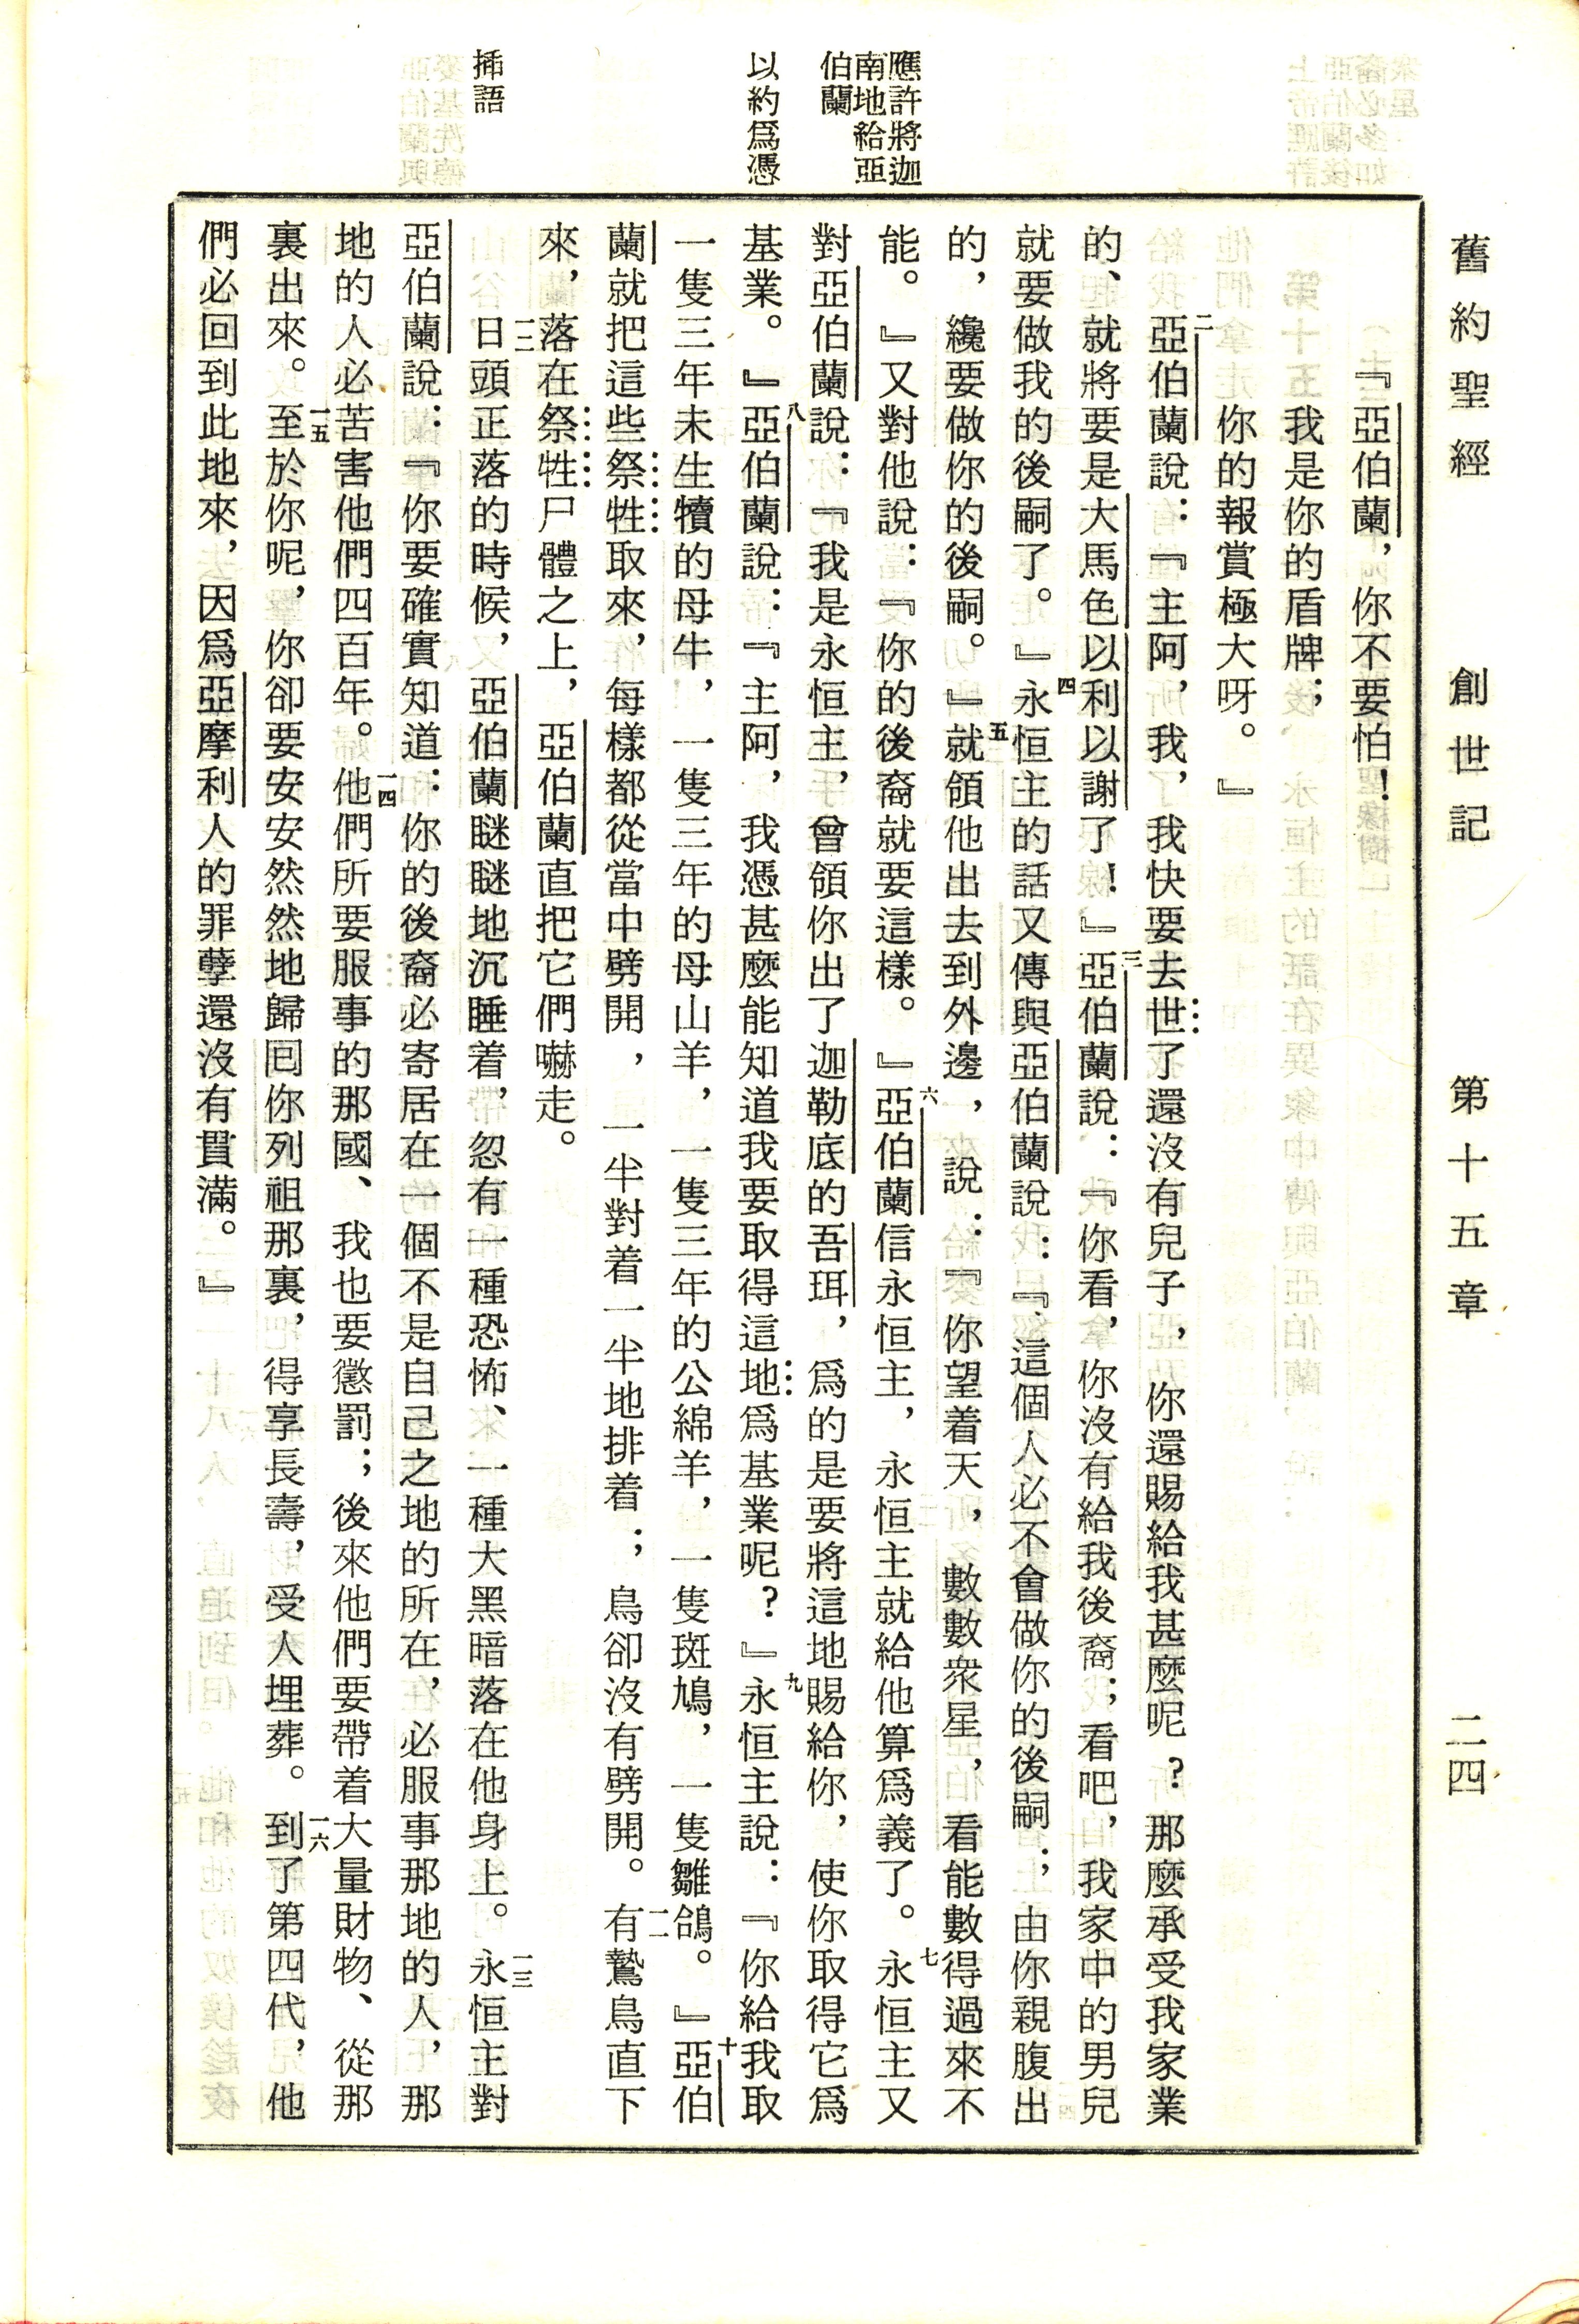 舊約聖經　創世記　第十五章　二四
應許將迦
南地給亞
伯蘭
以約爲憑
揷語
『亞伯蘭，你不要怕！
我是你的盾牌；
你的報賞極大呀。』
二亞伯蘭說：『主阿，我，我快要去世了還沒有兒子，你還賜給我甚麼呢？那麼承受我家業
的、就將要是大馬色以利以謝了！』三亞伯蘭說：『你看，你沒有給我後裔；看吧，我家中的男兒
就要做我的後嗣了。』四永恒主的話又傳與亞伯蘭說：『這個人必不會做你的後嗣；由你親腹出
的，纔要做你的後嗣。』五就領他出去到外邊，說：『你望着天，數數衆星，看能數得過來不
能。』又對他說：『你的後裔就要這樣。』六亞伯蘭信永恒主，永恒主就給他算爲義了。七永恒主又
對亞伯蘭說：『我是永恒主，曾領你出了迦勒底的吾珥，爲的是要將這地賜給你，使你取得它爲
基業。』八亞伯蘭說：『主阿，我憑甚麼能知道我要取得這地爲基業呢？』九永恒主說：『你給我取
一隻三年未生犢的母牛，一隻三年的母山羊，一隻三年的公綿羊，一隻斑鳩，一隻雛鴿。』十亞伯
蘭就把這些祭牲取來，每樣都從當中劈開，一半對着一半地排着；鳥卻沒有劈開。一一有鷙鳥直下
來，落在祭牲尸體之上，亞伯蘭直把它們嚇走。
一二日頭正落的時候，亞伯蘭瞇瞇地沉睡着，忽有一種恐怖、一種大黑暗落在他身上。一三永恒主對
亞伯蘭說：『你要確實知道：你的後裔必寄居在一個不是自己之地的所在，必服事那地的人，那
地的人必苦害他們四百年。一四他們所要服事的那國、我也要懲罰；後來他們要帶着大量財物、從那
裏出來。一五至於你呢，你卻要安安然然地歸囘你列祖那裏，得享長壽，受人埋葬。一六到了第四代，他
們必回到此地來，因爲亞摩利人的罪孽還沒有貫滿。』